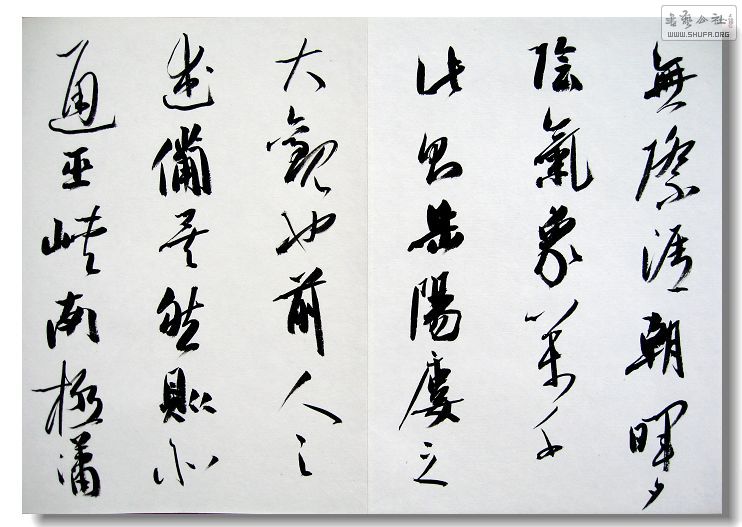 無際涯朝暉夕
陰氣象萬千
此則岳陽樓之
大觀也前人之
述備矣然則北
通巫峽南極瀟
書藝公社
WWW.SHUFA.ORG